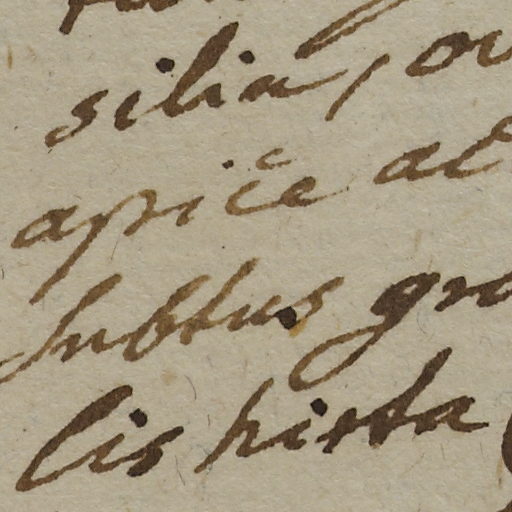 silia, ov
apice at
subtus gra
lis hirta